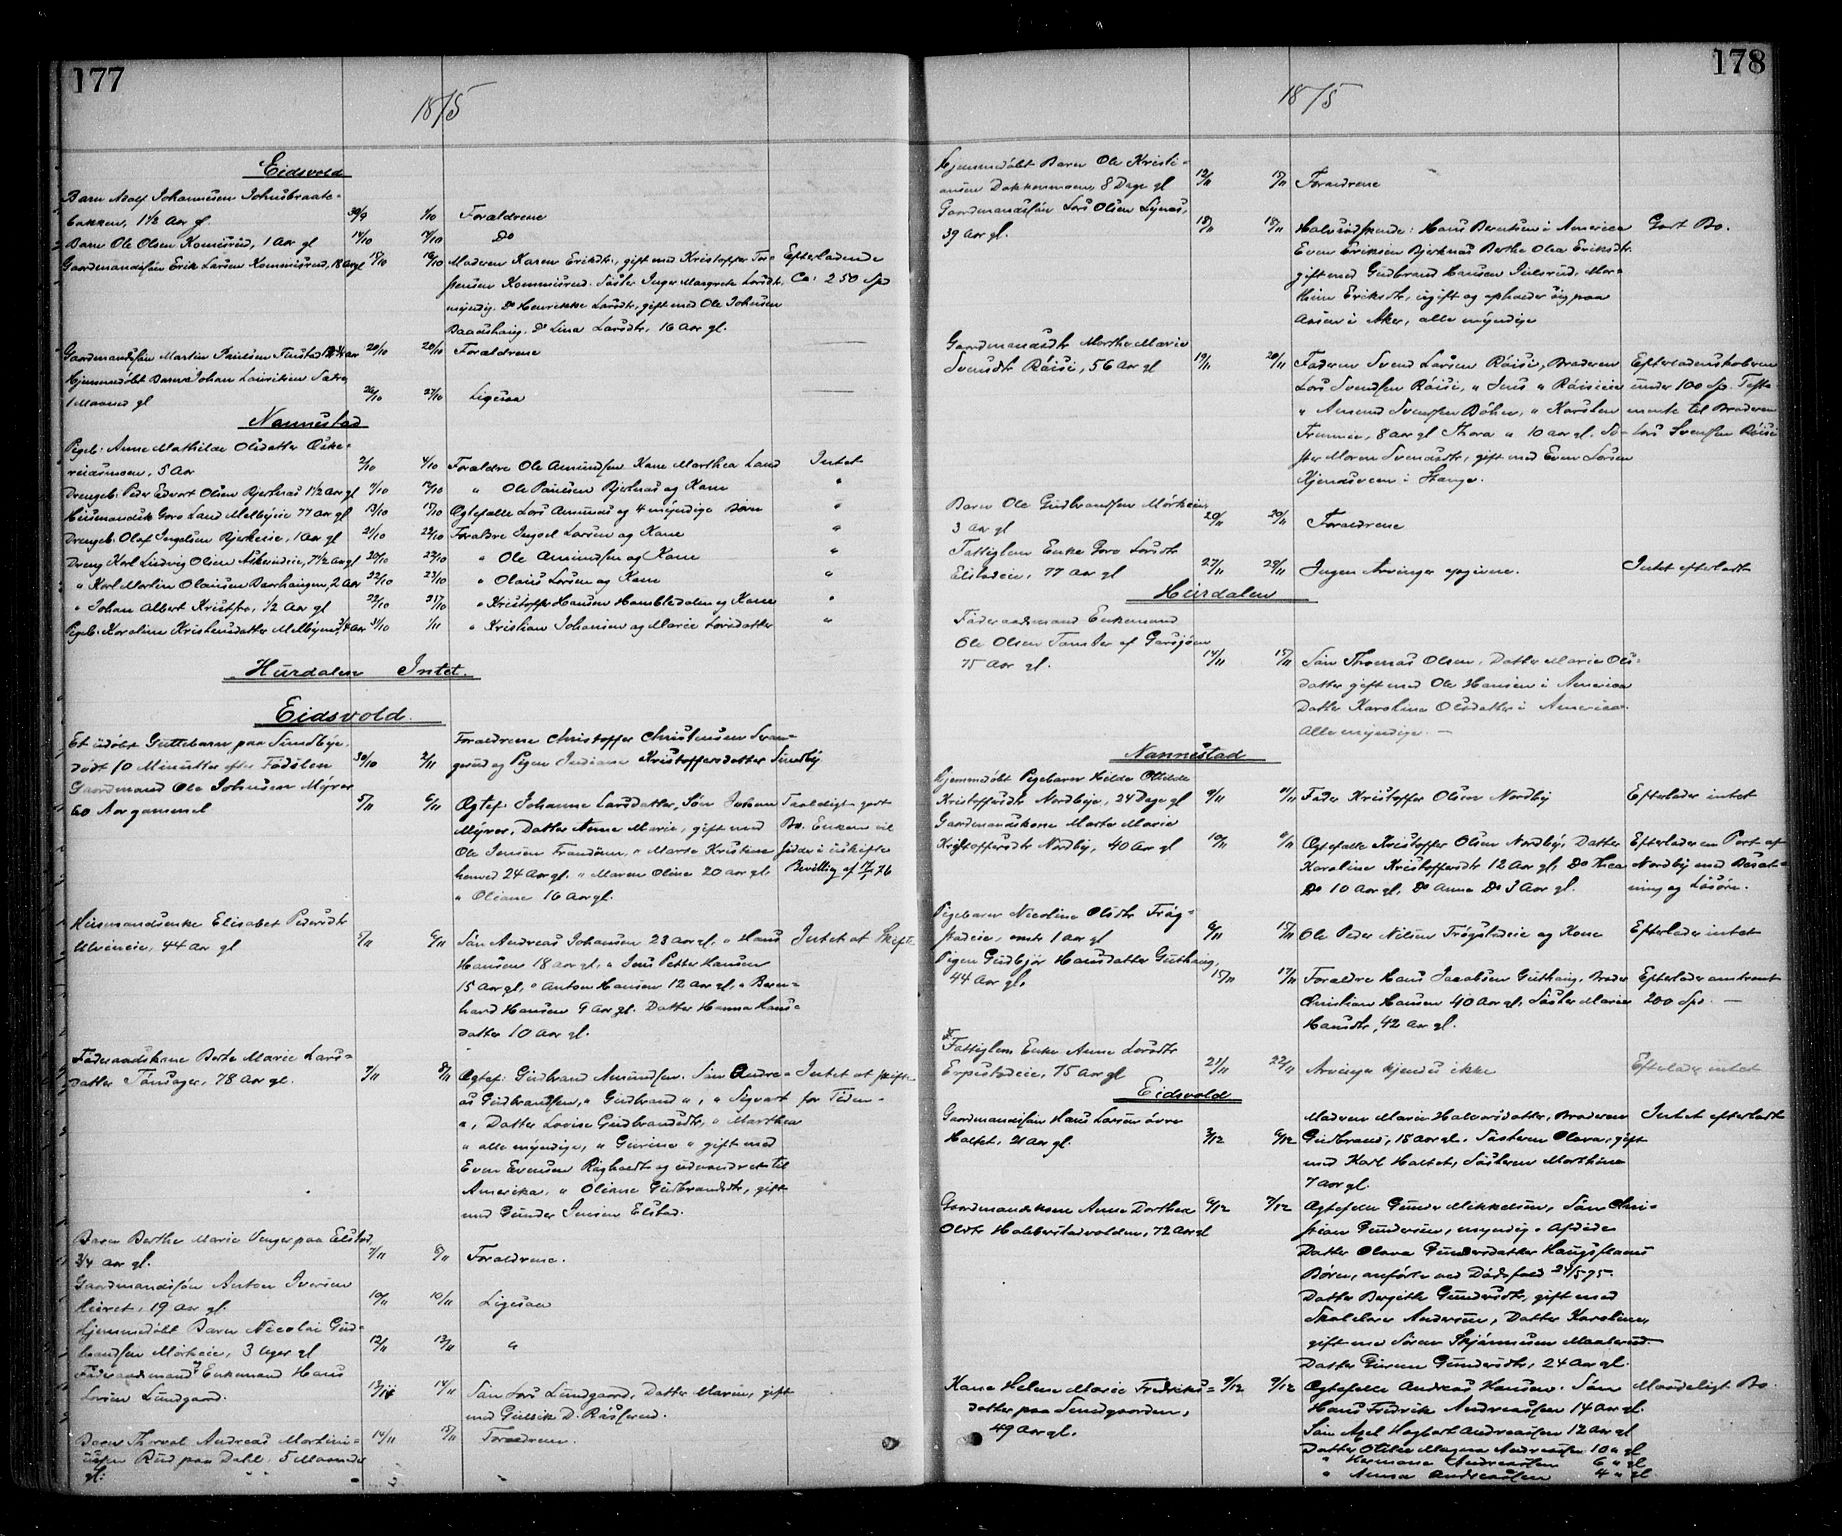 177
1875
Eidsvold
Barn Adolf Johannesen Johnsbraate-
bakken, 1 1/2 Aar gl. 30/9 1/10 Forældrene
Barn Ole Olsen Komisrud, 1 Aar gl 14/10 Do
Gaardmandssøn Erik Larsen Kommisrud, 18 Aar gl 15/10 16/10 Moderen Karen Eriksdtr, gift med Kristoffer Tor- Efterladende
stensen Kommisrud. Søster Inger Margrete Larsdtr. Ca: 250 Spd
myndig. Do Henrikke Larsdtr, gift med Ole Johnsen
Do Lina Larsdtr, 16 Aar gl.
Gaardmandssøn Martin Paulsen 20/10 20/10 Forældrene
Hjemmedøbt Barn Johan Lauritsen
1 Maaned gl 26/10 27/10 Ligesaa
Nannestad
Pigeb. Anne Mathilde Olsdatter Aske-
reidsmoen, 5 Aar 2/10 4/10 Forældre Ole Amundsen Kone Marthea Land Intet
Drengeb. Peder Edvart Olsen Bjerknæs 1 1/2 Aar gl " Ole Paulsen Bjerknæs og Kone "
Husmandsk Goro Land Melbyeie 77 Aar gl 13/10 17/10 Ægtefælle Lars Amunds og 4 myndige Børn "
Drengeb. Olaf Ingelsen Bjerkeeie, 1 Aar gl 21/10 22/10 Forældre Ingvel Larsen og Kone "
Dreng Karl Ludvig Olsen 7 1/2 Aar gl 20/10 22/10 " Ole Amundsen og Kone "
" Karl Martin Olausen 2 Aar 22/10 23/10 " Olaus Larsen og Kone "
" Johan Albert Kristfrs. 1/2 Aar gl 22/10 " Kristoffer Hansen og Kone "
Pigeb. Karoline Kristensdatter 3/4 Aar 31/10 1/11 " Kristian Johansen og Marie Larsdatter "
Hurdalen Intet.
Eidsvold.
Et udøbt Guttebarn paa Sundbye. Forældrene Christoffer Christensen Svan-
død 10 Minutter efter Fødslen 30/10 2/11 gerud og Pigen Indiane Kristoffersdatter Sundby
Gaardmand Ole Johnsen Myrer
60 Aar gammel 5/11 6/11 Ægtef. Johanne Larsdatter, Søn Johan Taaleligt godt
Myrer, Datter Anne Marie, gift med Bo. Enken vil
Ole Jensen " Marte Kristine sidde i uskiftet
24 Aar gl. " Maren Oline 20 Aar gl. Bevilling af 17/1 76
" Oliane 16 Aar gl.
Husmandsenke Elisabet Pedersdtr
Ulvineie, 44 Aar gl 5/11 6/11 Søn Andreas Johansen 23 Aar gl. " Hans Intet at Skifte
Hansen 18 Aar gl. " Jens Petter Hansen
15 Aar gl. " Anton Hansen 12 Aar gl. " Bern-
hard Hansen 9 Aar gl. Datter Hanna Hans-
datter 10 Aar gl.
Føderaadskone Berte Marie Lars-
datter Tønsager, 78 Aar gl. 7/11 8/11 Ægtef: Gudbrand Amundsen. Søn Andre- Intet at skifte
as Gudbrandsen, " Gudbrand ", " Syvert for Tiden-
", Datter Lovise Gudbrandsdtr, " Marthea
" alle myndige, " Gurine " gift med
Even Evensen og udvandret til
Amerika. " Oliane Gudbrandsdtr, gift
med Gunder Jensen Elstad.
Barn Berthe Marie paa Elstad,
3/4 Aar gl. 7/11 8/11 Forældrene.
Gaardmandssøn Anton Iversen
19 Aar gl. 10/11 10/11 Ligesaa
Hjemmedøbt Barn Nicolai Gud-
brandsen Mørkeie, 3 Uger gl 12/11 13/11 "
Føderaadsmand og Enkemand Hans
Larsen Lundgaard. 13/11 14/11 Søn Lars Lundgaard, Datter Maren, gift
med Gulbrik D. Raaserud.
Barn Thorval Andreas Martini-
ussen Rud paa Dahl. 5 Maaneder 14/11 15/11 Forældrene.
gl.
178
1875
Hjemmedøbt Barn Ole Kristi-
ansen Dokkenmoen, 8 Dage gl 12/11 Forældrene
Gaardmandssøn Lars Olsen
39 Aar gl. 18/11 18/11 Halvsødskende: Hans Berntsen i America Godt Bo.
Even Eriksen Bjerknæs Berthe Olea Eriksdtr.
gift med Gudbrand Hansen Julsrud, Mar-
thine Eriksdtr, ugift og opholder sig paa
Aasen i Aker, alle myndige
Gaardmandsdtr Marthe Marie
Svendsdtr Røise, 56 Aar gl 19/11 20/11 Faderen Svend Larsen Røise, Broderen Efterladenskaberne
Lars Svendsen Røise, " Jens " Røiseeie under 100 Sp. Testa-
" Amund Svendsen Bøhn, " Karsten mente til Broderen
8 Aar gl Thora " 10 Aar gl. Sø- Lars Svendsen Røise
ster Maren Svendsdtr, gift med Even Larsen
i Stange.
Barn Ole Gudbrandsen Mørkeie,
3 Aar gl 20/11 20/11 Forældrene
Fattiglem Enke Goro Larsdtr
Elstadeie, 77 Aar gl 27/11 29/11 Ingen Arvinger opgivne. Intet efterladt
Hurdalen
Føderaadsmand Enkemand
Ole Olsen Tømter af Garsjøen
75 Aar gl. 14/11 15/11 Søn Thomas Olsen. Datter Marie Ols-
datter gift med Ole Hansen i America
Datter Karoline Olsdatter i America
Alle myndige. —
Nannestad
Hjemmedøbt Pigebarn Hilda Otilde
Kristoffersdtr Nordbye, 24 Dage gl 9/11 Fader Kristoffer Olsen Nordby Efterlader intet
Gaardmandskone Marte Marie
Kristoffersdtr Nordby, 40 Aar gl 10/11 Ægtefælle Kristoffer Olsen Nordby, Datter Efterlader en Part af
Karoline Kristoffersdtr 12 Aar gl, Do Thea Nordby med Besæt-
Do 10 Aar gl. Do Anna Do 3 Aar gl. ning og Løsøre.
Pigebarn Nicoline Olsdtr Frøg-
stadeie, omtr 1 Aar gl 6/11 15/11 Ole Peder Nilsen Frøgstadeie og Kone Efterlader intet
Pigen Gudbjør Hansdatter Guthaug,
44 Aar gl. 15/11 17/11 Forældre Hans Jacobsen Guthaug, Broder Efterlader omtrent
Christian Hansen 40 Aar gl. Søster Marie 200 Spd. —
Hansdtr, 42 Aar gl.
Fattiglem Enke Anne Larsdtr
Erpestadeie, 75 Aar gl 21/11 22/11 Arvinger kjendes ikke Efterlader intet
Eidsvold
Gaardmandssøn Hans Larsen øvre Moderen Marie Halvorsdatter, Broderen Intet efterladt
Holtet, 21 Aar gl. 3/12 6/12 Gudbrand, 15 Aar gl. Søsteren Olava, gift
med Karl Holtet, Søsteren Marthine
7 Aar gl.
Gaardmandskone Anne Dorthea 6/12 7/12 Ægtefælle Gunder Mikkelsen, Søn Chri-
Olsdtr Habberstadvolden, 72 Aar gl stian Gundersen, myndig. Afdøde
Datter Olava Gundersdatter
Børn, anførte ved Dødsfald 24/5 75.
Datter Bergithe Gundersdtr, gift med
Skolelærer Andersen, Datter Karoline,
gift med Søren
Datter Gurine Gundersdtr, 24 Aar gl.
Kone Helene Marie Fredriks- 9/12 9/12 Ægtefælle Andreas Hansen. Søn Maadeligt Bo.
datter paa Sundgaarden, Hans Fredrik Andreassen 14 Aar gl.
49 Aar gl. Søn Axel Hagbart Andreassen 12 Aar gl
Datter Otilie Magna Andreassen 10 " gl
" Hermana Andreassen 6 " gl
" Anna Andreassen 4 " gl